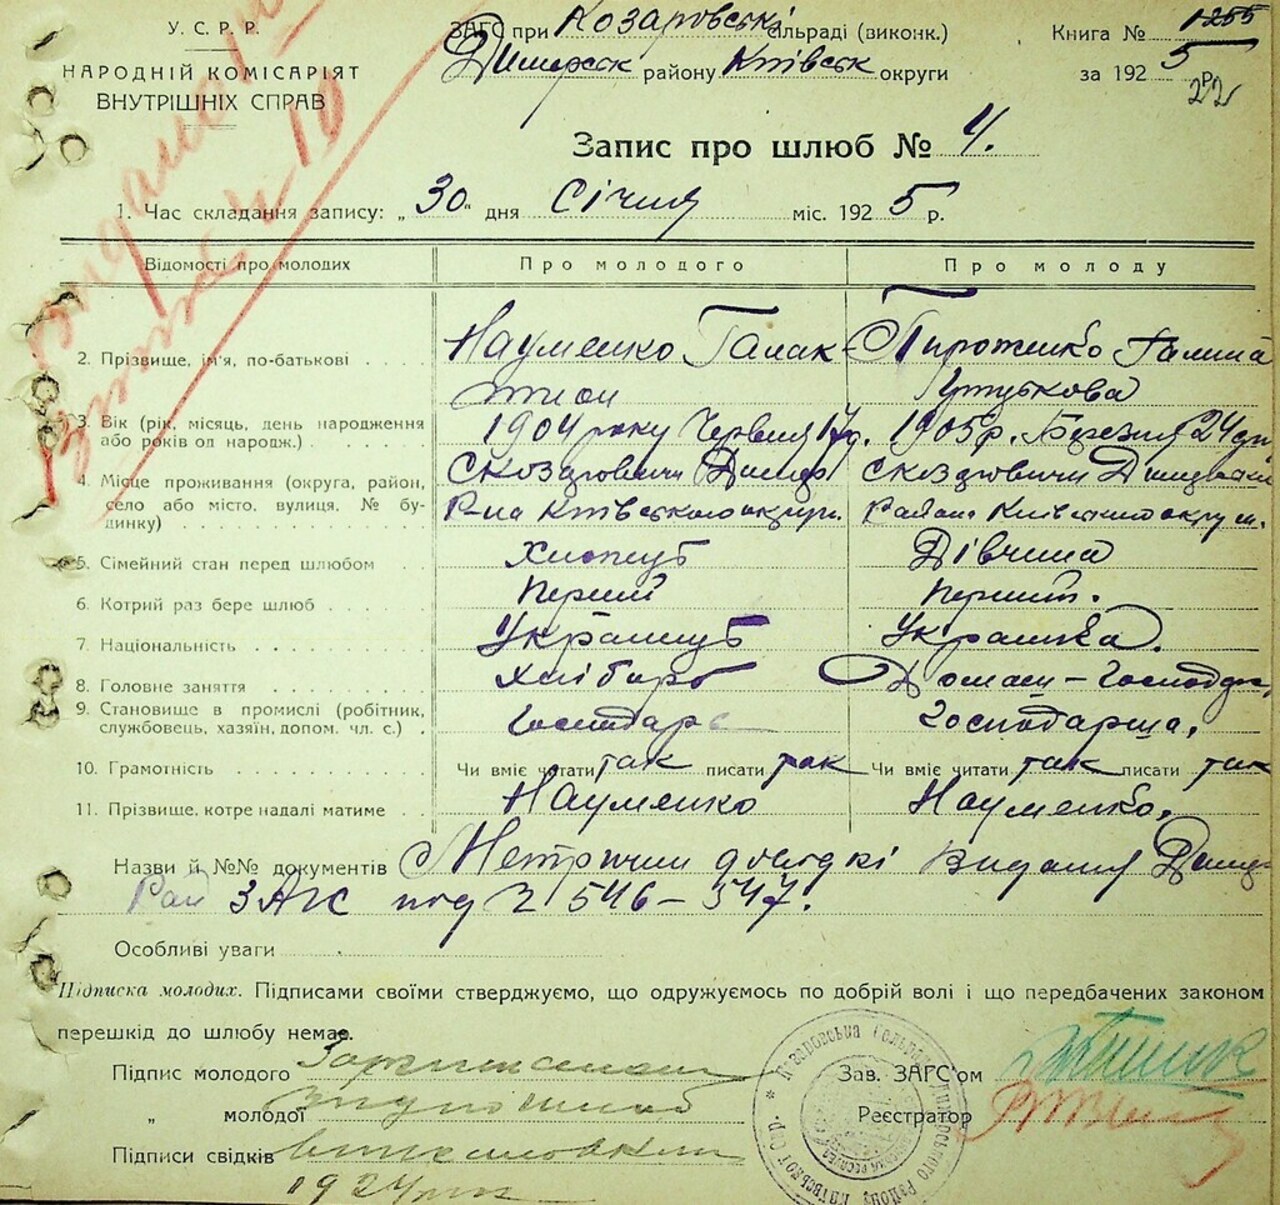 У.С.Р.Р.
НАРОДНІЙ КОМІСАРІЯТ
ВНУТРІШНІХ СПРАВ
ЗАГС при Козаровські сільраді (виконк.)
Димерськ району Київськ округи
Книга № 1255
за 1925 р.
22
Запис про шлюб № 4.
1. Час складання запису: „30“ дня Січня міс. 1925 р.
Відомості про молодих Про молодого Про молоду
2. Прізвище, ім'я, по-батькові Науменко Галак- Пироженко Галина
тион
3. Вік (рік, місяць, день народження або років од народж.) 1904 року Червня 17д. 1905р. Березня 24дня
4. Місце проживання (округа, район, село або місто, вулиця, № будинку) С Козаровичи Димер С Козаровичи Димерськ
Р-на Київського округи. Района Київського округи.
5. Сімейний стан перед шлюбом Хлопець Дівчина
6. Котрий раз бере шлюб Перший Перший.
7. Національність Українець Українка.
8. Головне заняття Хлібороб Домаш-Господар
9. Становище в промислі (робітник, службовець, хазяїн, допом. чл. с.) Господарь Господарша.
10. Грамотність Чи вміє читати так писати так Чи вміє читати так писати так
11. Прізвище, котре надалі матиме Науменко Науменко.
Назви й №№ документів Метричні довідкі видания Димер
Рай ЗАГС под № 546–547.
Особливі уваги
Підписка молодих. Підписами своїми стверджуємо, що одружуємось по добрій волі і що передбачених законом
перешкід до шлюбу немає.
Підпис молодого
„ молодої
Підписи свідків
Зав. ЗАГС'ом
Реєстратор